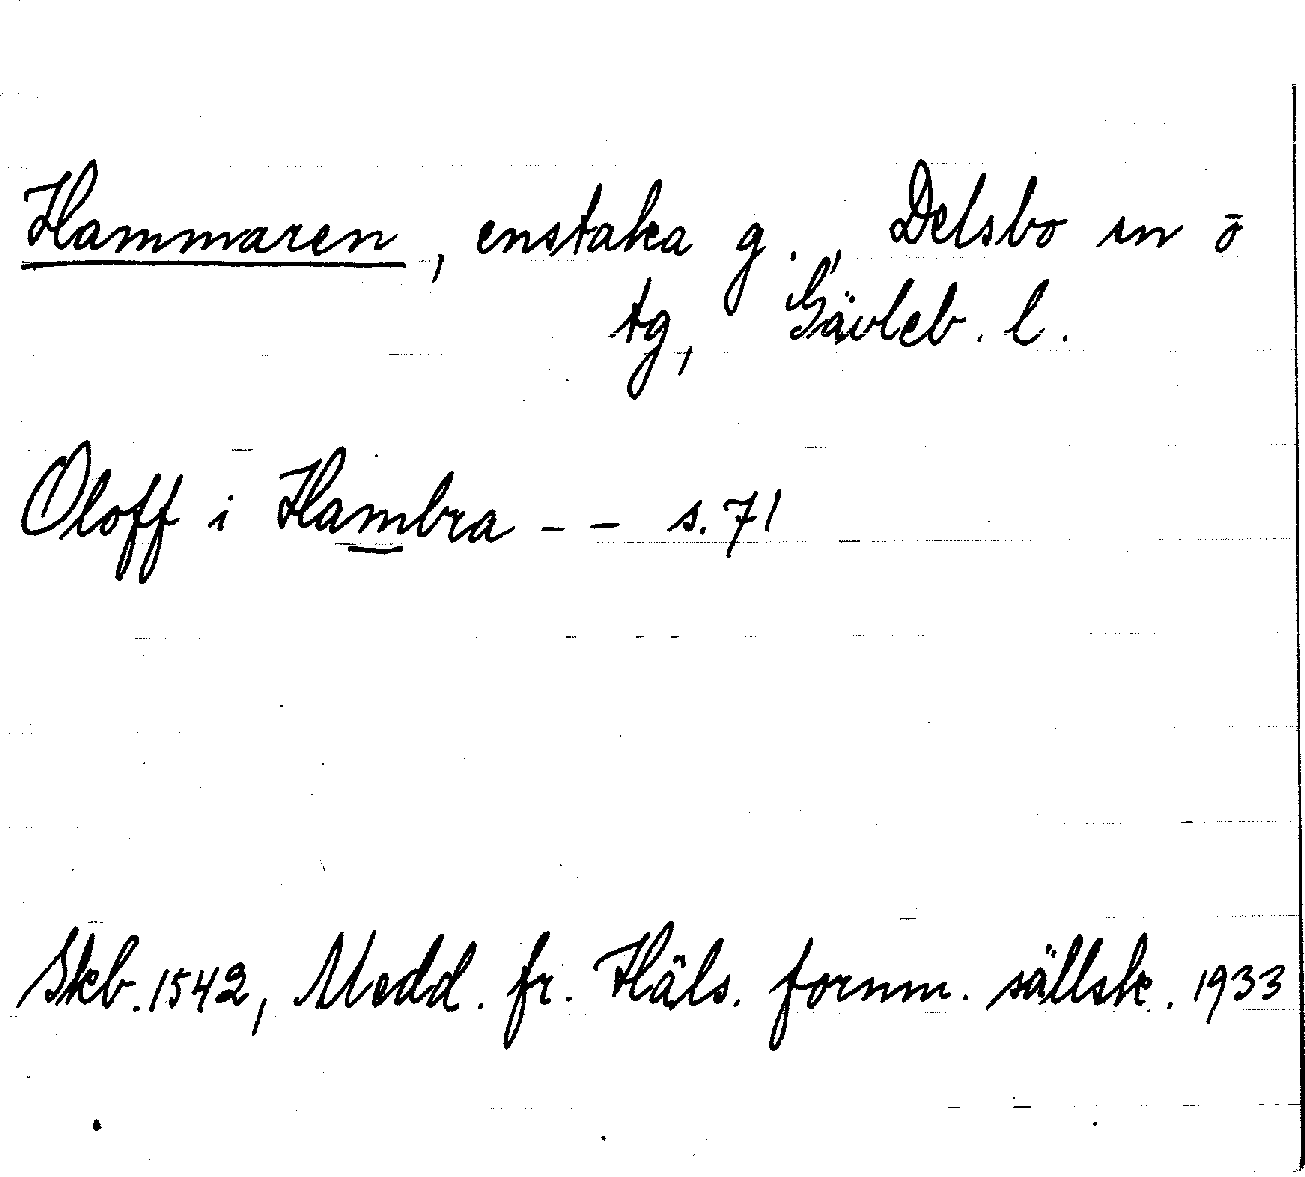 Hammaren, enstaka g., Delsbo sn ö
tg, Gävleb. l.
Oloff i Hambra - - s. 71
Skb. 1542, Medd. fr. Häls. fornm. sällsk. 1933